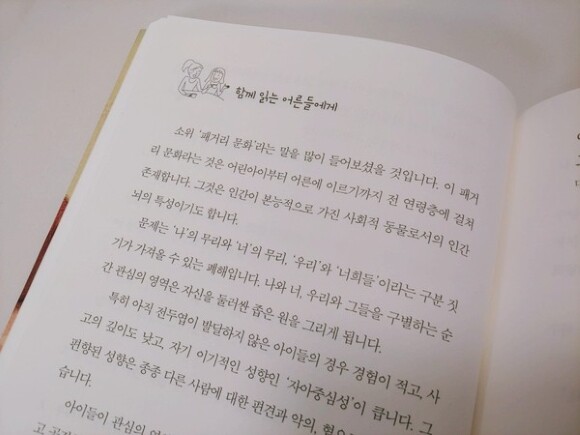 함께 읽는 어른들에게
소위 '패거리 문화'라는 말을 많이 들어보셨을 것입니다. 이 패거
리 문화라는 것은 어린아이부터 어른에 이르기까지 전 연령층에 걸쳐
존재합니다. 그것은 인간이 본능적으로 가진 사회적 동물로서의 인간
뇌의 특성이기도 합니다.
문제는 '나'의 무리와 '너'의 무리, '우리'와 '너희들'이라는 구분 짓
기가 가져올 수 있는 폐해입니다. 나와 너, 우리와 그들을 구별하는 순
간 관심의 영역은 자신을 둘러싼 좁은 원을 그리게 됩니다.
특히 아직 전두엽이 발달하지 않은 아이들의 경우 경험이 적고, 사
고의 깊이도 낮고, 자기 이기적인 성향인 '자아중심성'이 큽니다. 그
편향된 성향은 종종 다른 사람에 대한 편견과 악의, 혐오
습니다.
아이들이 관심의
고